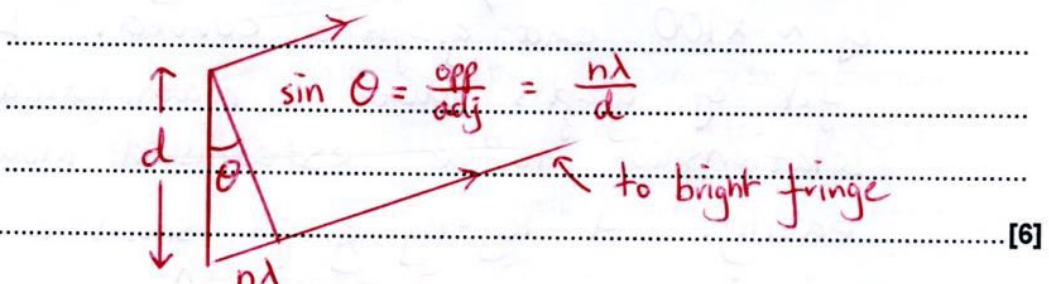 sin θ = opp/adj = nλ/d
d
θ
to bright fringe
[6]
nλ